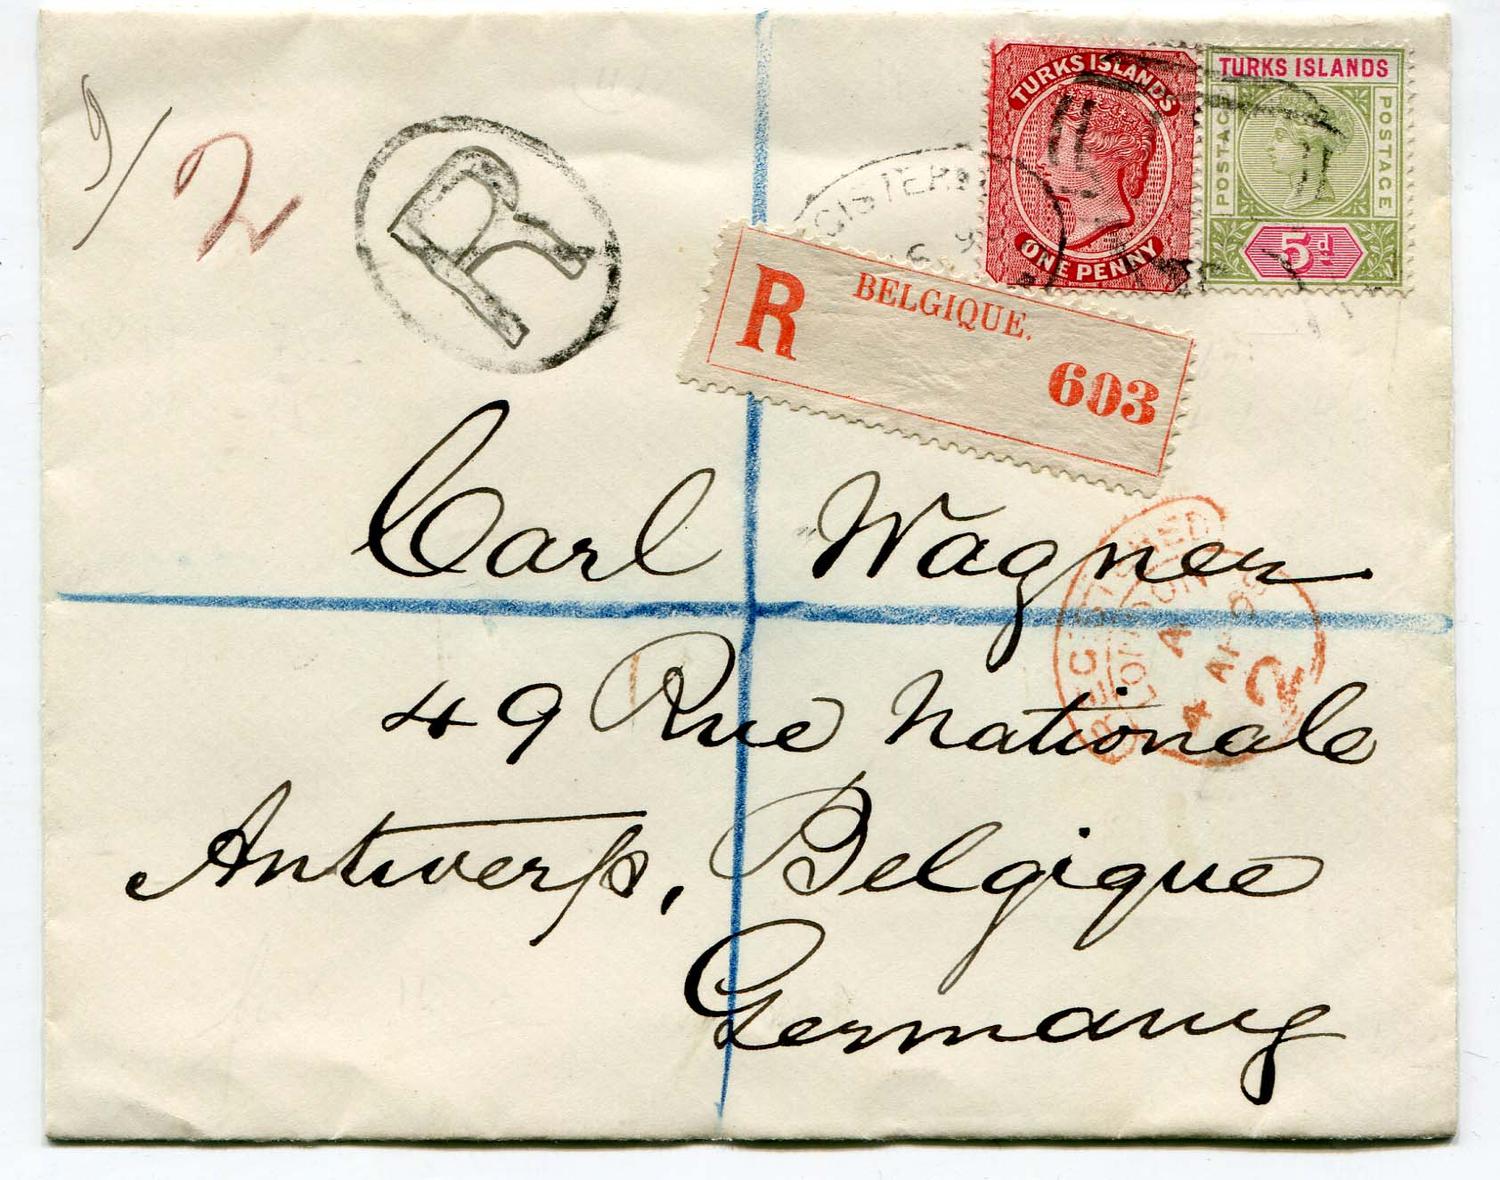 9/
2
R
REGISTERED
TURKS ISLANDS
ONE PENNY
TURKS ISLANDS
POSTAGE
POSTAGE
5d
R BELGIQUE.
603
Carl Wagner
REGISTERED
LONDON
4 AP 98
2
49 Rue Nationale
Antwerp, Belgique
Germany